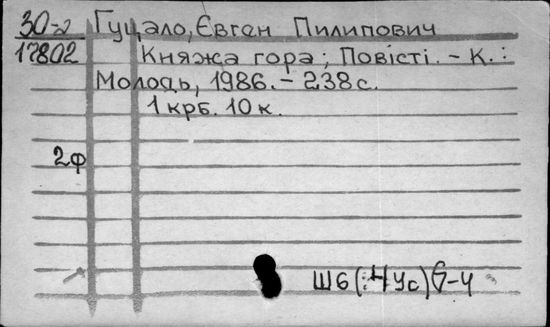 30-2 Гуцало, Євген Пилипович
17802 Княжа гора; Повісті. – К.:
Молодь, 1986. – 238 с.
1 крб. 10 к.
2ф
Ш6(4Ус)6-4